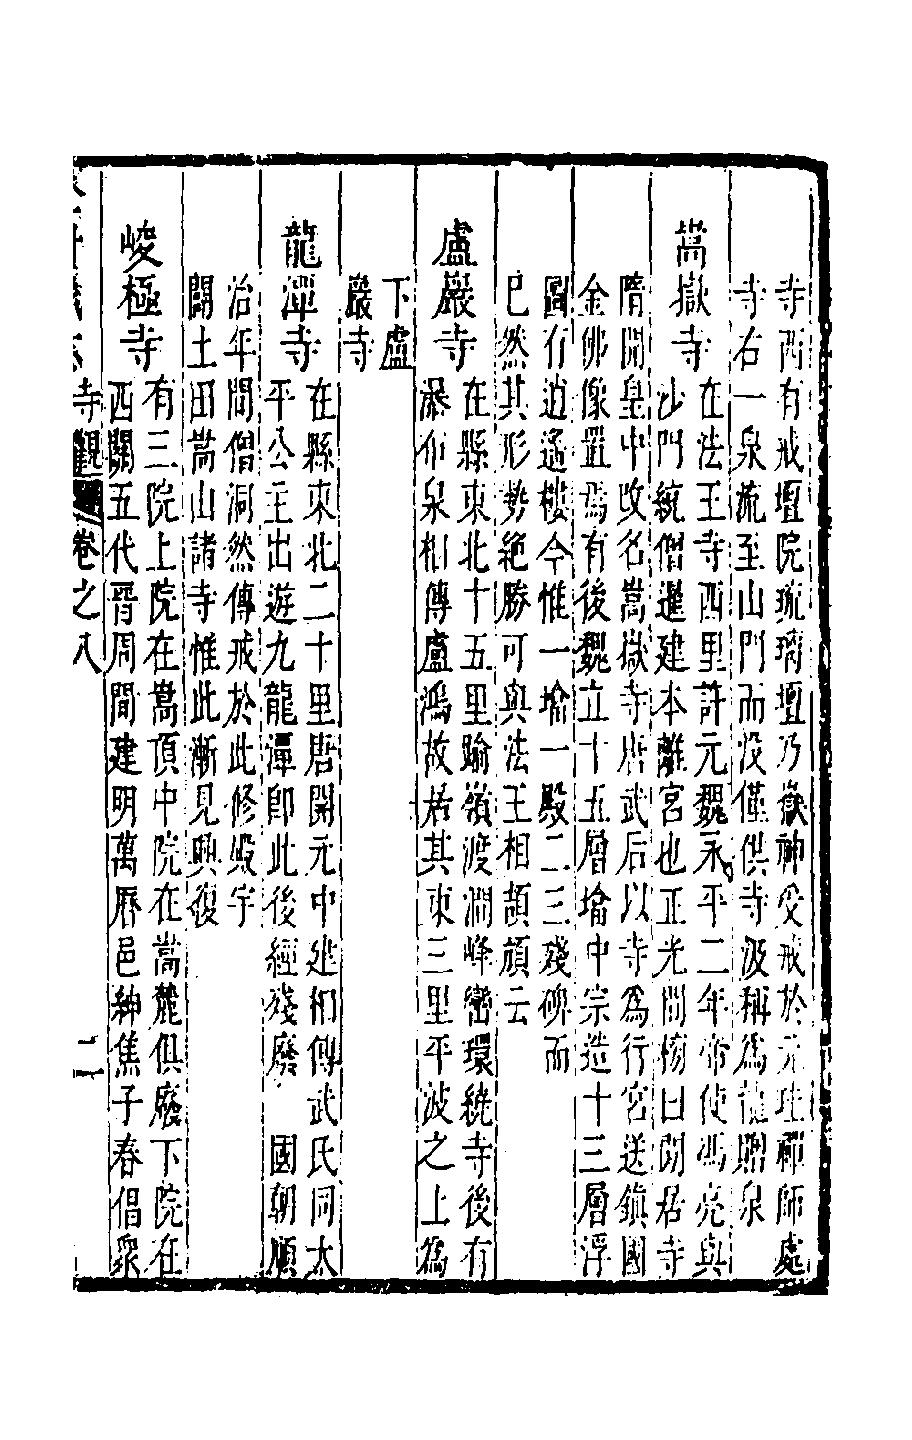 寺西有戒壇院琉璃壇乃嶽神受戒於元珪禪師處
寺右一泉流至山門而没僅供寺汲稱爲龍贈泉
嵩嶽寺
在法王寺西里許元魏永平二年帝使馮亮與
沙門統僧暹建本離宮也正光間榜曰閒居寺
隋開皇中改名嵩嶽寺唐武后以寺爲行宮送鎮國
金佛像置焉有後魏立十五層墖中宗造十三層浮
圖有逍遙樓今惟一墖一殿二三殘碑而
已然其形勢絶勝可與法王相頡頏云
盧巖寺
在縣東北十五里踰嶺渡澗峰巒環繞寺後有
瀑布泉相傳盧鴻故居其東三里平波之上爲
下盧
巖寺
龍潭寺
在縣東北二十里唐開元中建相傳武氏同太
平公主出遊九龍潭即此後經殘廢 國朝順
治年間僧洞然傳戒於此修殿宇
闢土田嵩山諸寺惟此漸見興復
峻極寺
有三院上院在嵩頂中院在嵩麓俱廢下院在
西關五代晉周間建明萬曆邑紳焦子春倡衆
寺觀
卷之八
二